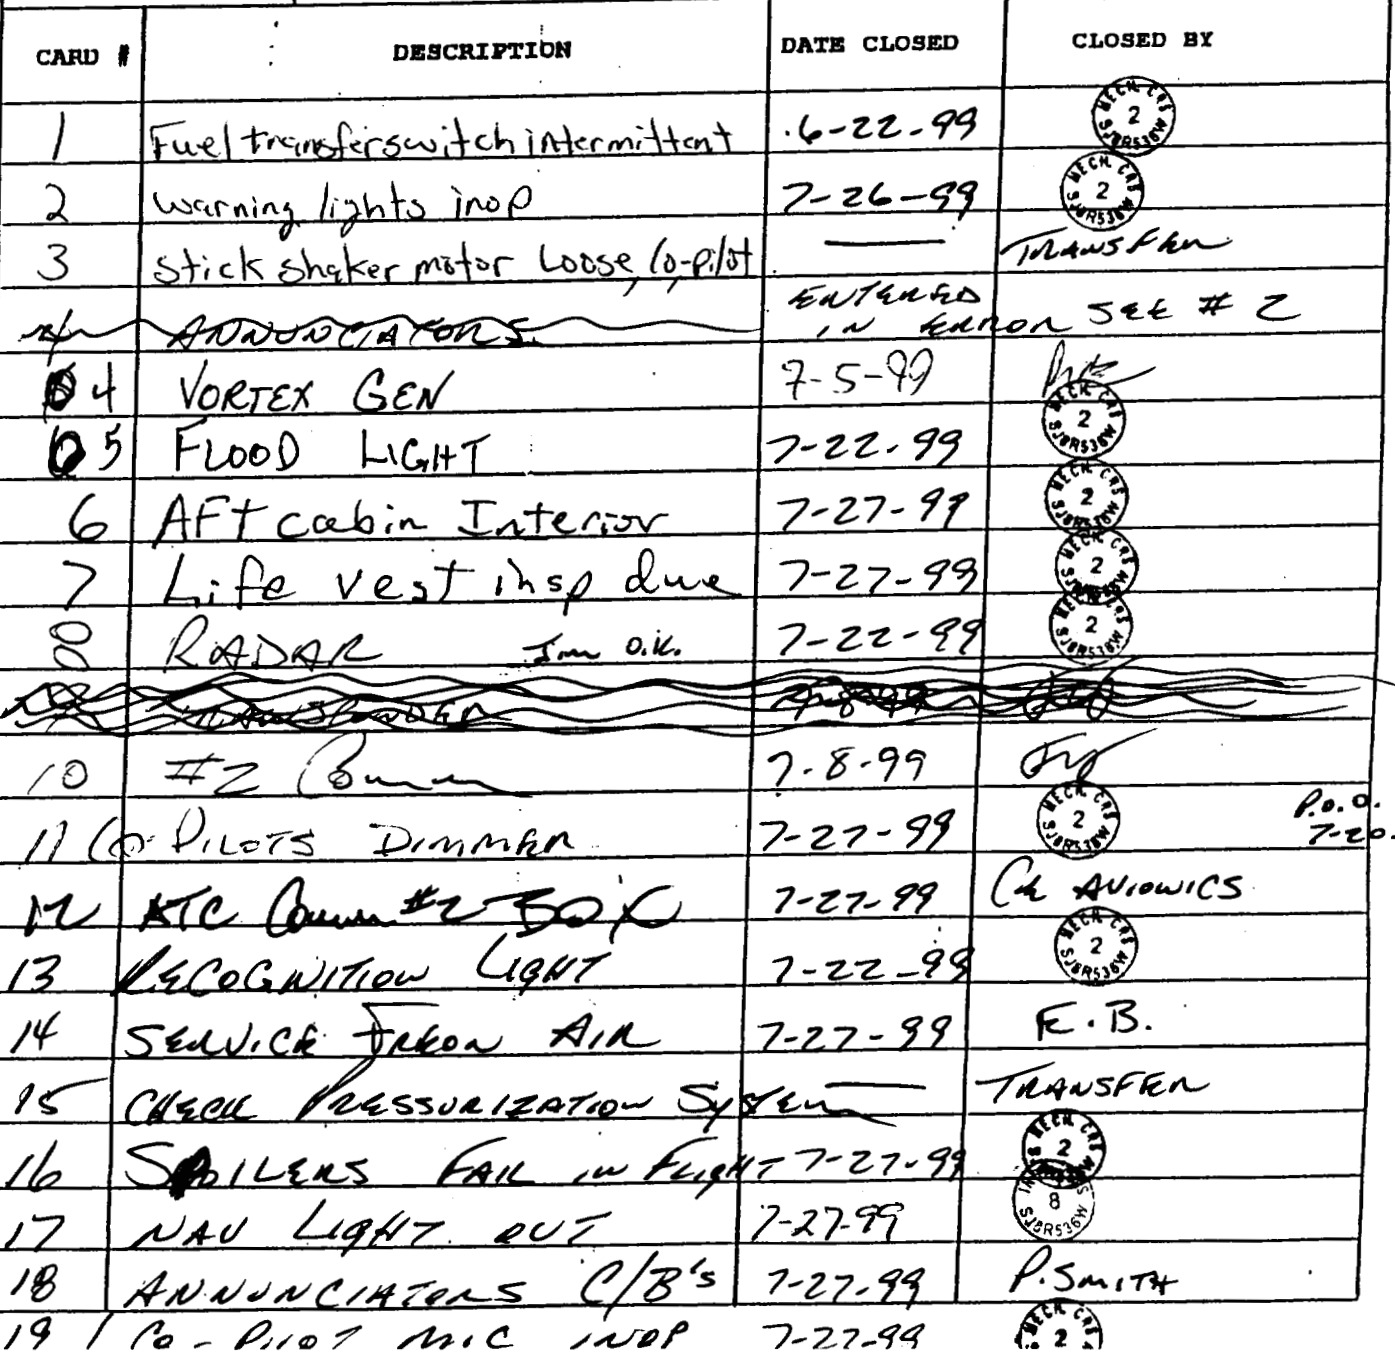 CARD # DESCRIPTION DATE CLOSED CLOSED BY
1 Fuel transfer switch intermittent 6-22-99 MECH. CRS 2 SJ8R536W
2 warning lights inop 7-26-99 MECH. CRS 2 SJ8R536W
3 stick shaker motor loose, Co-pilot — TRANSFER
4 ANNUNCIATORS ENTERED IN ERROR SEE # 2
4 VORTEX GEN 7-5-99
5 FLOOD LIGHT 7-22-99 MECH. CRS 2 SJ8R536W
6 AFT cabin Interior 7-27-99 MECH. CRS 2 SJ8R536W
7 Life vest insp due 7-27-99 MECH. CRS 2 SJ8R536W
8 RADAR Jim O.K. 7-22-99 MECH. CRS 2 SJ8R536W
TRANSPONDER 7-8-99
10 #2 Comm 7-8-99
11 Co-PILOTS DIMMER 7-27-99 MECH. CRS 2 SJ8R536W P.O.O. 7-20.
12 ATC Comm #2 BOX 7-27-99 CR AVIONICS
13 RECOGNITION LIGHT 7-22-99 MECH. CRS 2 SJ8R536W
14 SERVICE FREON AIR 7-27-99 E.B.
15 CHECK PRESSURIZATION SYSTEM — TRANSFER
16 SPOILERS FAIL IN FLIGHT 7-27-99 MECH. CRS 2
17 NAV LIGHT OUT 7-27-99 8 SJ8R536W
18 ANNUNCIATORS C/B's 7-27-99 P. SMITH
19 CO-PILOT MIC INOP 7-27-99 MECH. CRS 2